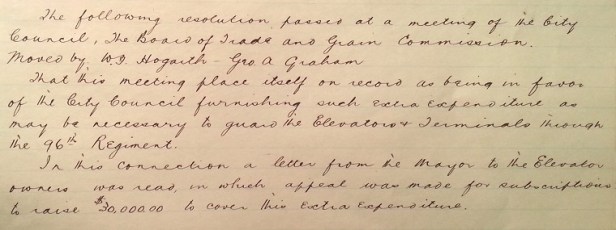 The following resolution passed at a meeting of the City
Council, The Board of Trade and Grain Commission.
Moved by W.D. Hogarth - Geo. A Graham
That this meeting place itself on record as being in favor
of the City Council furnishing such extra expenditure as
may be necessary to guard the Elevators & Terminals through
the 96th Regiment.
In this connection a letter from the Mayor to the Elevator
owners was read, in which appeal was made for subscriptions
to raise $30,000.00 to cover this extra expenditure.